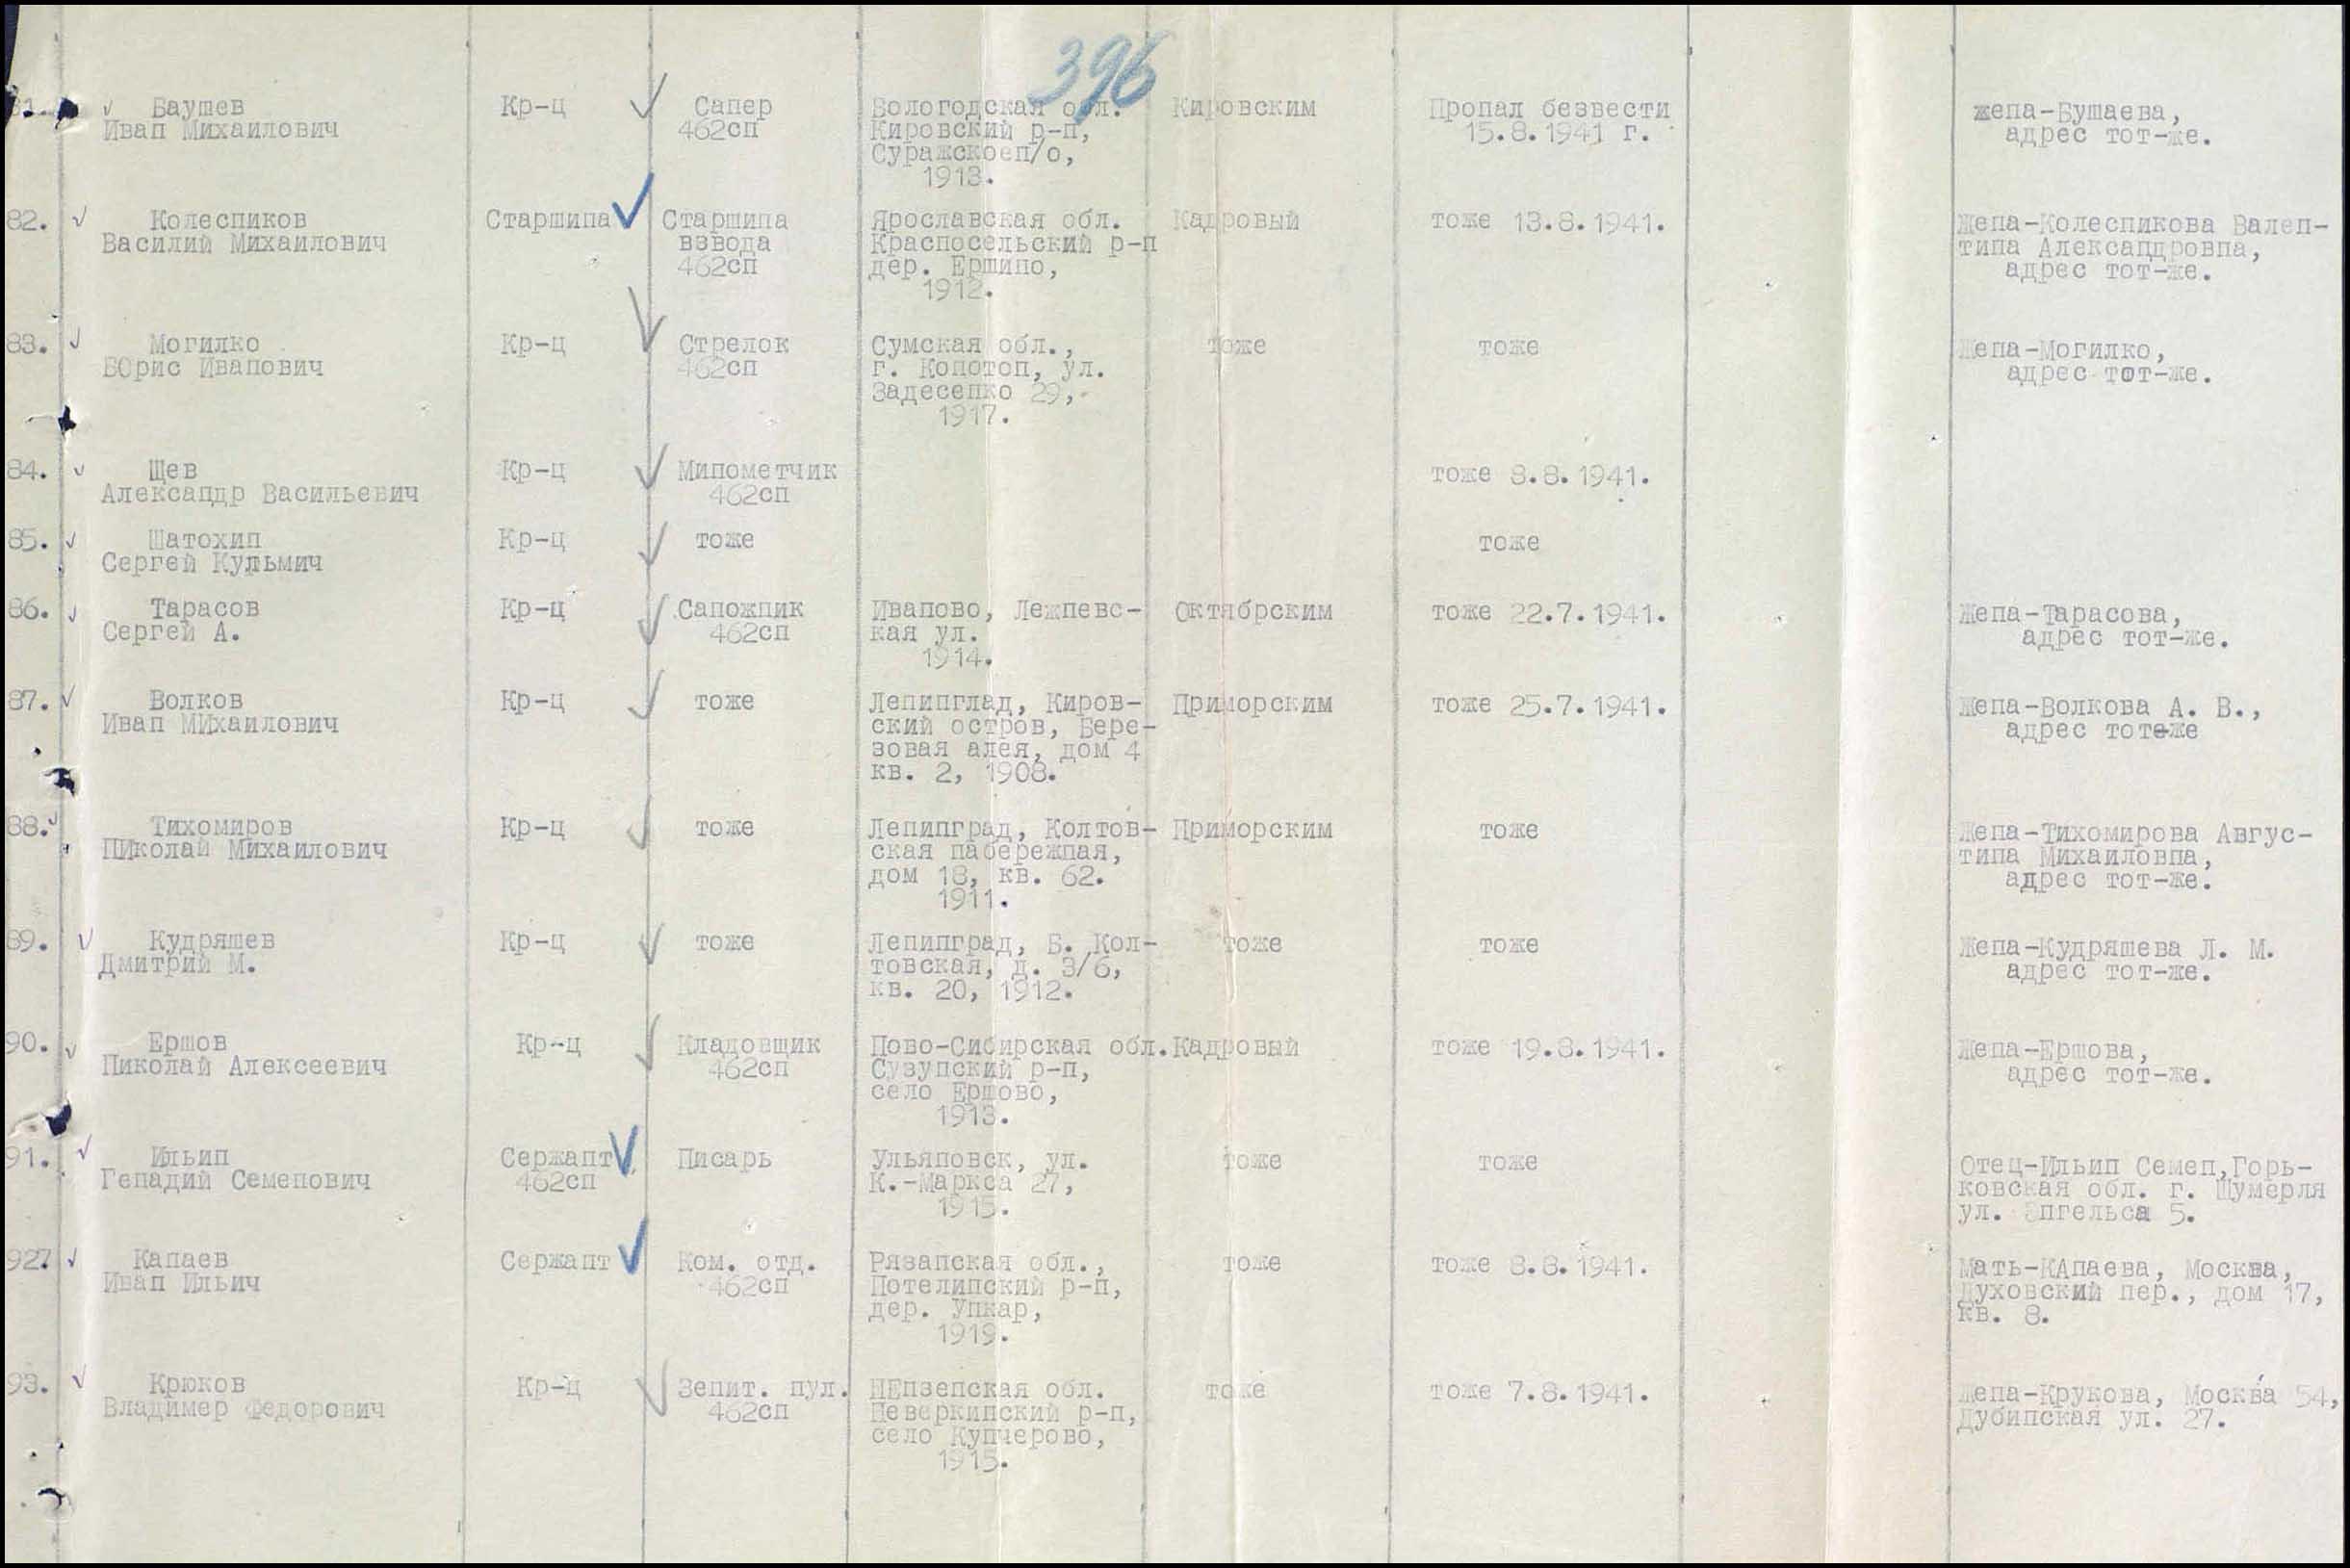 396
81. Баушев Кр-ц Сапер Вологодская обл. Кировским Пропал безвести жепа-Бушаева,
Ивап Михаилович 462сп Кировский р-п, 15.8.1941 г. адрес тот-же.
Суражскоеп/о,
1913.
82. Колеспиков Старшипа Старшипа Ярославская обл. Кадровый тоже 13.8.1941. Жепа-Колеспикова Валеп-
Василий Михаилович взвода Краспосельский р-п типа Алексапдровпа,
462сп дер. Ершипо, адрес тот-же.
1912.
83. Могилко Кр-ц Стрелок Сумская обл., тоже тоже Жепа-Могилко,
БОрис Ивапович 462сп г. Копотоп, ул. адрес тот-же.
Задесепко 29,
1917.
84. Щев Кр-ц Мипометчик тоже 8.8.1941.
Алексапдр Васильевич 462сп
85. Шатохип Кр-ц тоже тоже
Сергей Кульмич
86. Тарасов Кр-ц Сапожпик Ивапово, Лежпевс- Октябрским тоже 22.7.1941. Жепа-Тарасова,
Сергей А. 462сп кая ул. адрес тот-же.
1914.
87. Волков Кр-ц тоже Лепипглад, Киров- Приморским тоже 25.7.1941. Жепа-Волкова А. В.,
Ивап МИхаилович ский остров, Бере- адрес тот-же
зовая алея, дом 4
кв. 2, 1908.
88. Тихомиров Кр-ц тоже Лепипград, Колтов- Приморским тоже Жепа-Тихомирова Авгус-
ПИколай Михаилович ская пабережпая, типа Михаиловпа,
дом 18, кв. 62. адрес тот-же.
1911.
89. Кудряшев Кр-ц тоже Лепипград, Б. Кол- тоже тоже Жепа-Кудряшева Л. М.
Дмитрий М. товская, д. 3/6, адрес тот-же.
кв. 20, 1912.
90. Ершов Кр-ц Кладовщик Пово-Сибирская обл. Кадровый тоже 19.8.1941. Жепа-Ершова,
Пиколай Алексеевич 462сп Сузупский р-п, адрес тот-же.
село Ершово,
1913.
91. Ильип Сержапт Писарь Ульяповск, ул. тоже тоже Отец-Ильип Семеп,Горь-
Гепадий Семепович 462сп К.-Маркса 27, ковская обл. г. Шумерля
1915. ул. Эпгельса 5.
92. Капаев Сержапт Ком. отд. Рязапская обл., тоже тоже 8.8.1941. Мать-КАпаева, Москва,
Ивап Ильич 462сп Потелипский р-п, Духовский пер., дом 17,
дер. Упкар, кв. 8.
1919.
93. Крюков Кр-ц Зепит. пул. ПЕпзепская обл. тоже тоже 7.8.1941. Жепа-Крукова, Москва 54,
Владимер Федорович 462сп Певеркипский р-п, Дубипская ул. 27.
село Купчерово,
1915.